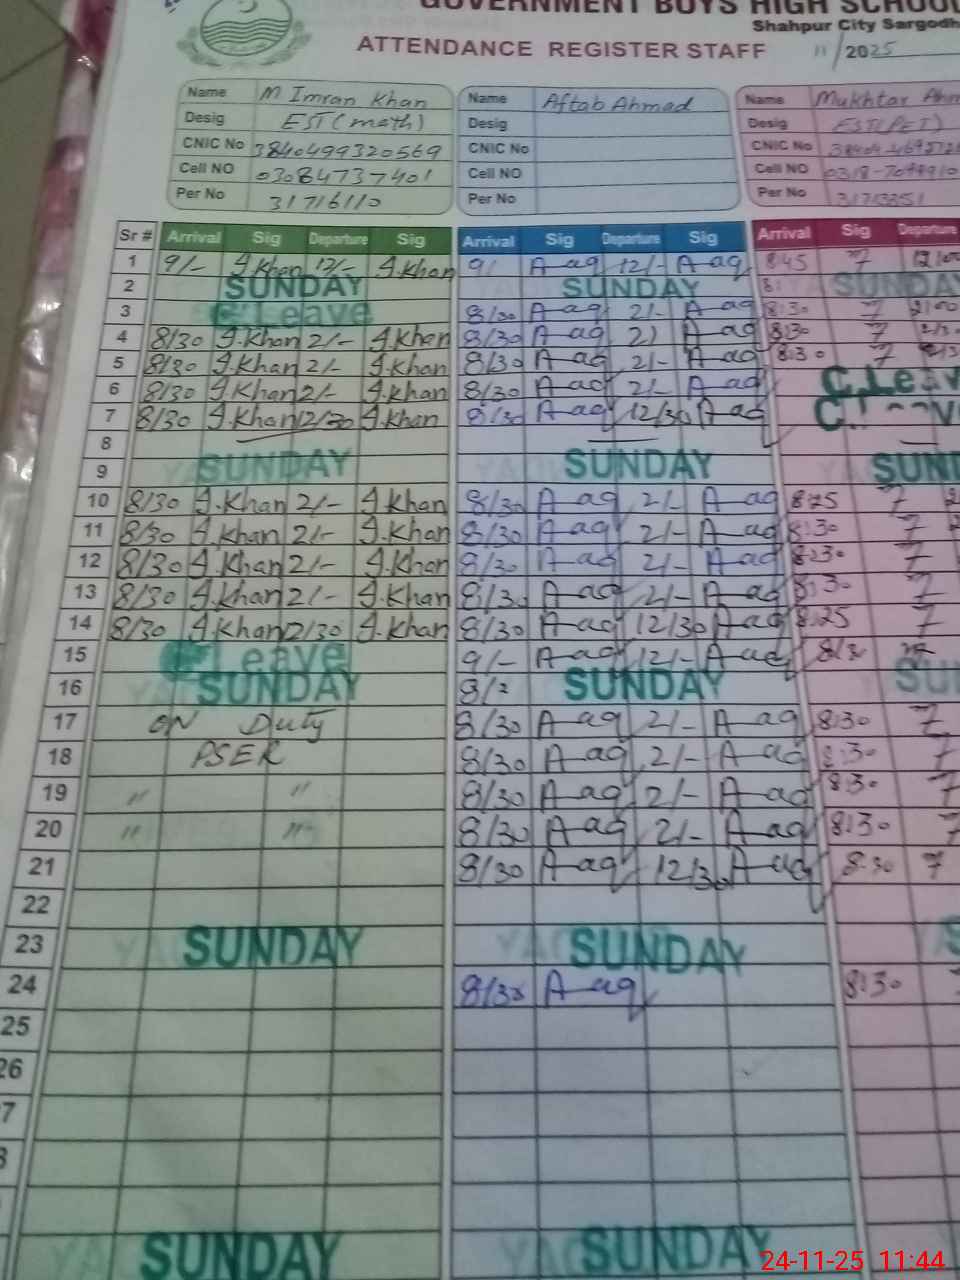 GOVERNMENT BOYS HIGH SCHOOL
Shahpur City Sargodh
ATTENDANCE REGISTER STAFF 11/2025
Name M Imran Khan Name Aftab Ahmad Name Mukhtar Ahm
Desig EST(math) Desig Desig EST(PET)
CNIC No 3840499320569 CNIC No CNIC No
Cell NO 03084737401 Cell NO Cell NO
Per No 31716110 Per No Per No
Sr # Arrival Sig Departure Sig Arrival Sig Departure Sig Arrival Sig Departure
1 9/- I.Khan 12/- I.Khan 9/ A aq 12/- A aq 8:45 7 12:00
2 SUNDAY SUNDAY SUNDAY
3 C.Leave 8/30 A aq 2/- A aq 8:30 7 2:00
4 8/30 I.Khan 2/- I.Khan 8/30 A aq 2) A aq 8:30 7
5 8/30 I.Khan 2/- I.Khan 8/30 A aq 2/- A aq 8:30 7
6 8/30 I.Khan 2/- I.Khan 8/30 A aq 2/- A aq C.Leav
7 8/30 I.Khan 12/30 I.Khan 8/30 A aq 12/30 A aq
8
9 SUNDAY SUNDAY SUN
10 8/30 I.Khan 2/- I.Khan 8/30 A aq 2/- A aq 8:25 7 2
11 8/30 I.Khan 2/- I.Khan 8/30 A aq 2/- A aq 8:30 7 2
12 8/30 I.Khan 2/- I.Khan 8/30 A aq 2/- A aq 8:30 7
13 8/30 I.Khan 2/- I.Khan 8/30 A aq 2/- A aq 8:30 7
14 8/30 I.Khan 12/30 I.Khan 8/30 A aq 12/30 A aq 8:25 7
15 Leave 9/- A aq 12/- A aq
16 SUNDAY 8/2 SUNDAY SU
17 ON Duty 8/30 A aq 2/- A aq 8:30 7
18 PSER 8/30 A aq 2/- A aq 8:30 7
19 " " 8/30 A aq 2/- A aq 8:30 7
20 " " 8/30 A aq 2/- A aq 8:30 7
21 8/30 A aq 12/30 A aq 8:30 7
22
23 SUNDAY SUNDAY S
24 8/30 A aq 8:30 7
25
26
7
SUNDAY SUNDAY
24-11-25 11:44